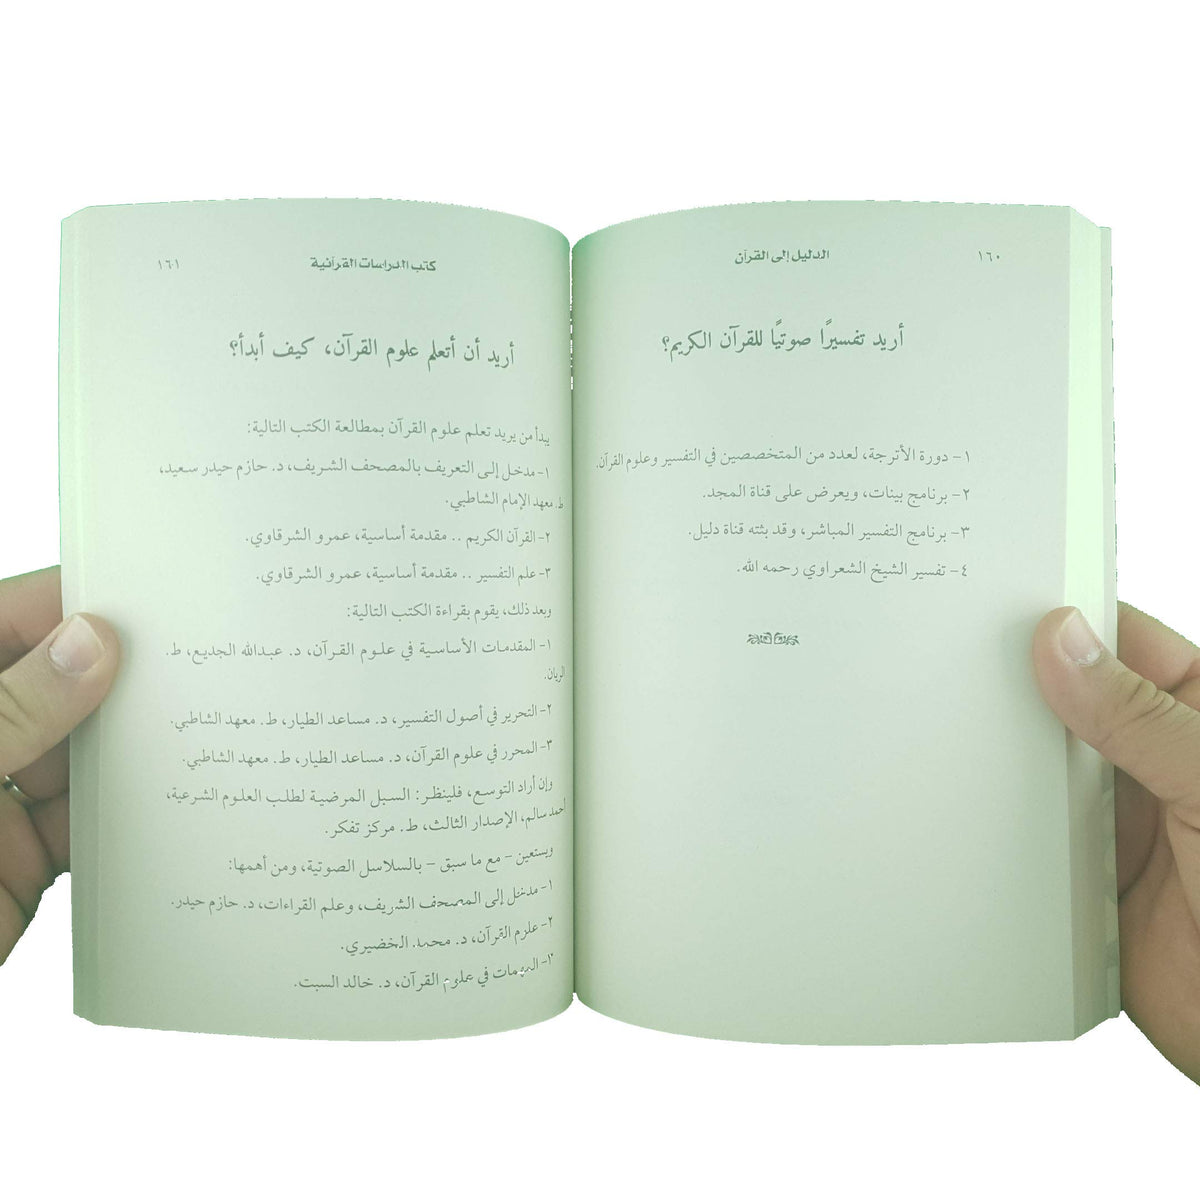 ١٦٠
الدليل إلى القرآن
أريد تفسيرًا صوتيًا للقرآن الكريم؟
١- دورة الأترجة، لعدد من المتخصصين في التفسير وعلوم القرآن.
٢- برنامج بينات، ويعرض على قناة المجد.
٣- برنامج التفسير المباشر، وقد بثته قناة دليل.
٤- تفسير الشيخ الشعراوي رحمه الله.
كتب الدراسات القرآنية
١٦١
أريد أن أتعلم علوم القرآن، كيف أبدأ؟
يبدأ من يريد تعلم علوم القرآن بمطالعة الكتب التالية:
١- مدخل إلى التعريف بالمصحف الشريف، د. حازم حيدر سعيد،
ط. معهد الإمام الشاطبي.
٢- القرآن الكريم .. مقدمة أساسية، عمرو الشرقاوي.
٣- علم التفسير .. مقدمة أساسية، عمرو الشرقاوي.
وبعد ذلك، يقوم بقراءة الكتب التالية:
١- المقدمات الأساسية في علوم القرآن، د. عبدالله الجديع، ط.
الريان.
٢- التحرير في أصول التفسير، د. مساعد الطيار، ط. معهد الشاطبي.
٣- المحرر في علوم القرآن، د. مساعد الطيار، ط. معهد الشاطبي.
وإن أراد التوسع، فلينظر: السبل المرضية لطلب العلوم الشرعية،
أحمد سالم، الإصدار الثالث، ط. مركز تفكر.
ويستعين – مع ما سبق – بالسلاسل الصوتية، ومن أهمها:
١- مدخل إلى المصحف الشريف، وعلم القراءات، د. حازم حيدر.
٢- علوم القرآن، د. محمد الخضيري.
٣- المهمات في علوم القرآن، د. خالد السبت.